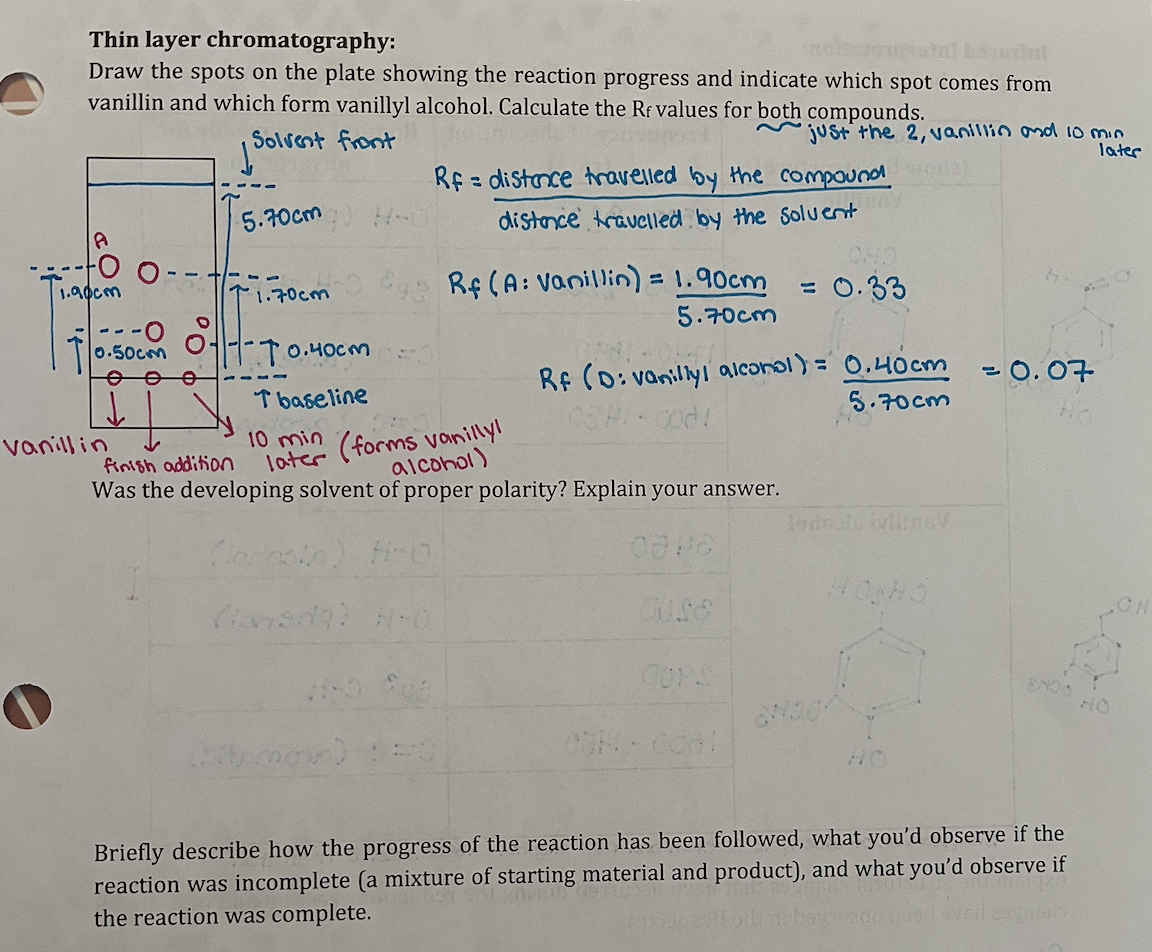 Thin layer chromatography:
Draw the spots on the plate showing the reaction progress and indicate which spot comes from
vanillin and which form vanillyl alcohol. Calculate the Rf values for both compounds.
just the 2, vanillin and 10 min
later
Solvent front
Rf = distance travelled by the compound
distance travelled by the solvent
5.70cm
A
1.90cm
1.70cm
Rf (A: vanillin) = 1.90cm = 0.33
5.70cm
D
0.50cm
0.40cm
Rf (D: vanillyl alcohol) = 0.40cm = 0.07
5.70cm
↑ baseline
vanillin
finish addition
10 min
later
(forms vanillyl
alcohol)
Was the developing solvent of proper polarity? Explain your answer.
Vanillyl alcohol
3450
O-H (alcohol)
3200
O-H (phenol)
2900
sp³ C-H
1600-1450
C=C (aromatic)
CH2OH
OCH3
OH
Briefly describe how the progress of the reaction has been followed, what you'd observe if the
reaction was incomplete (a mixture of starting material and product), and what you'd observe if
the reaction was complete.